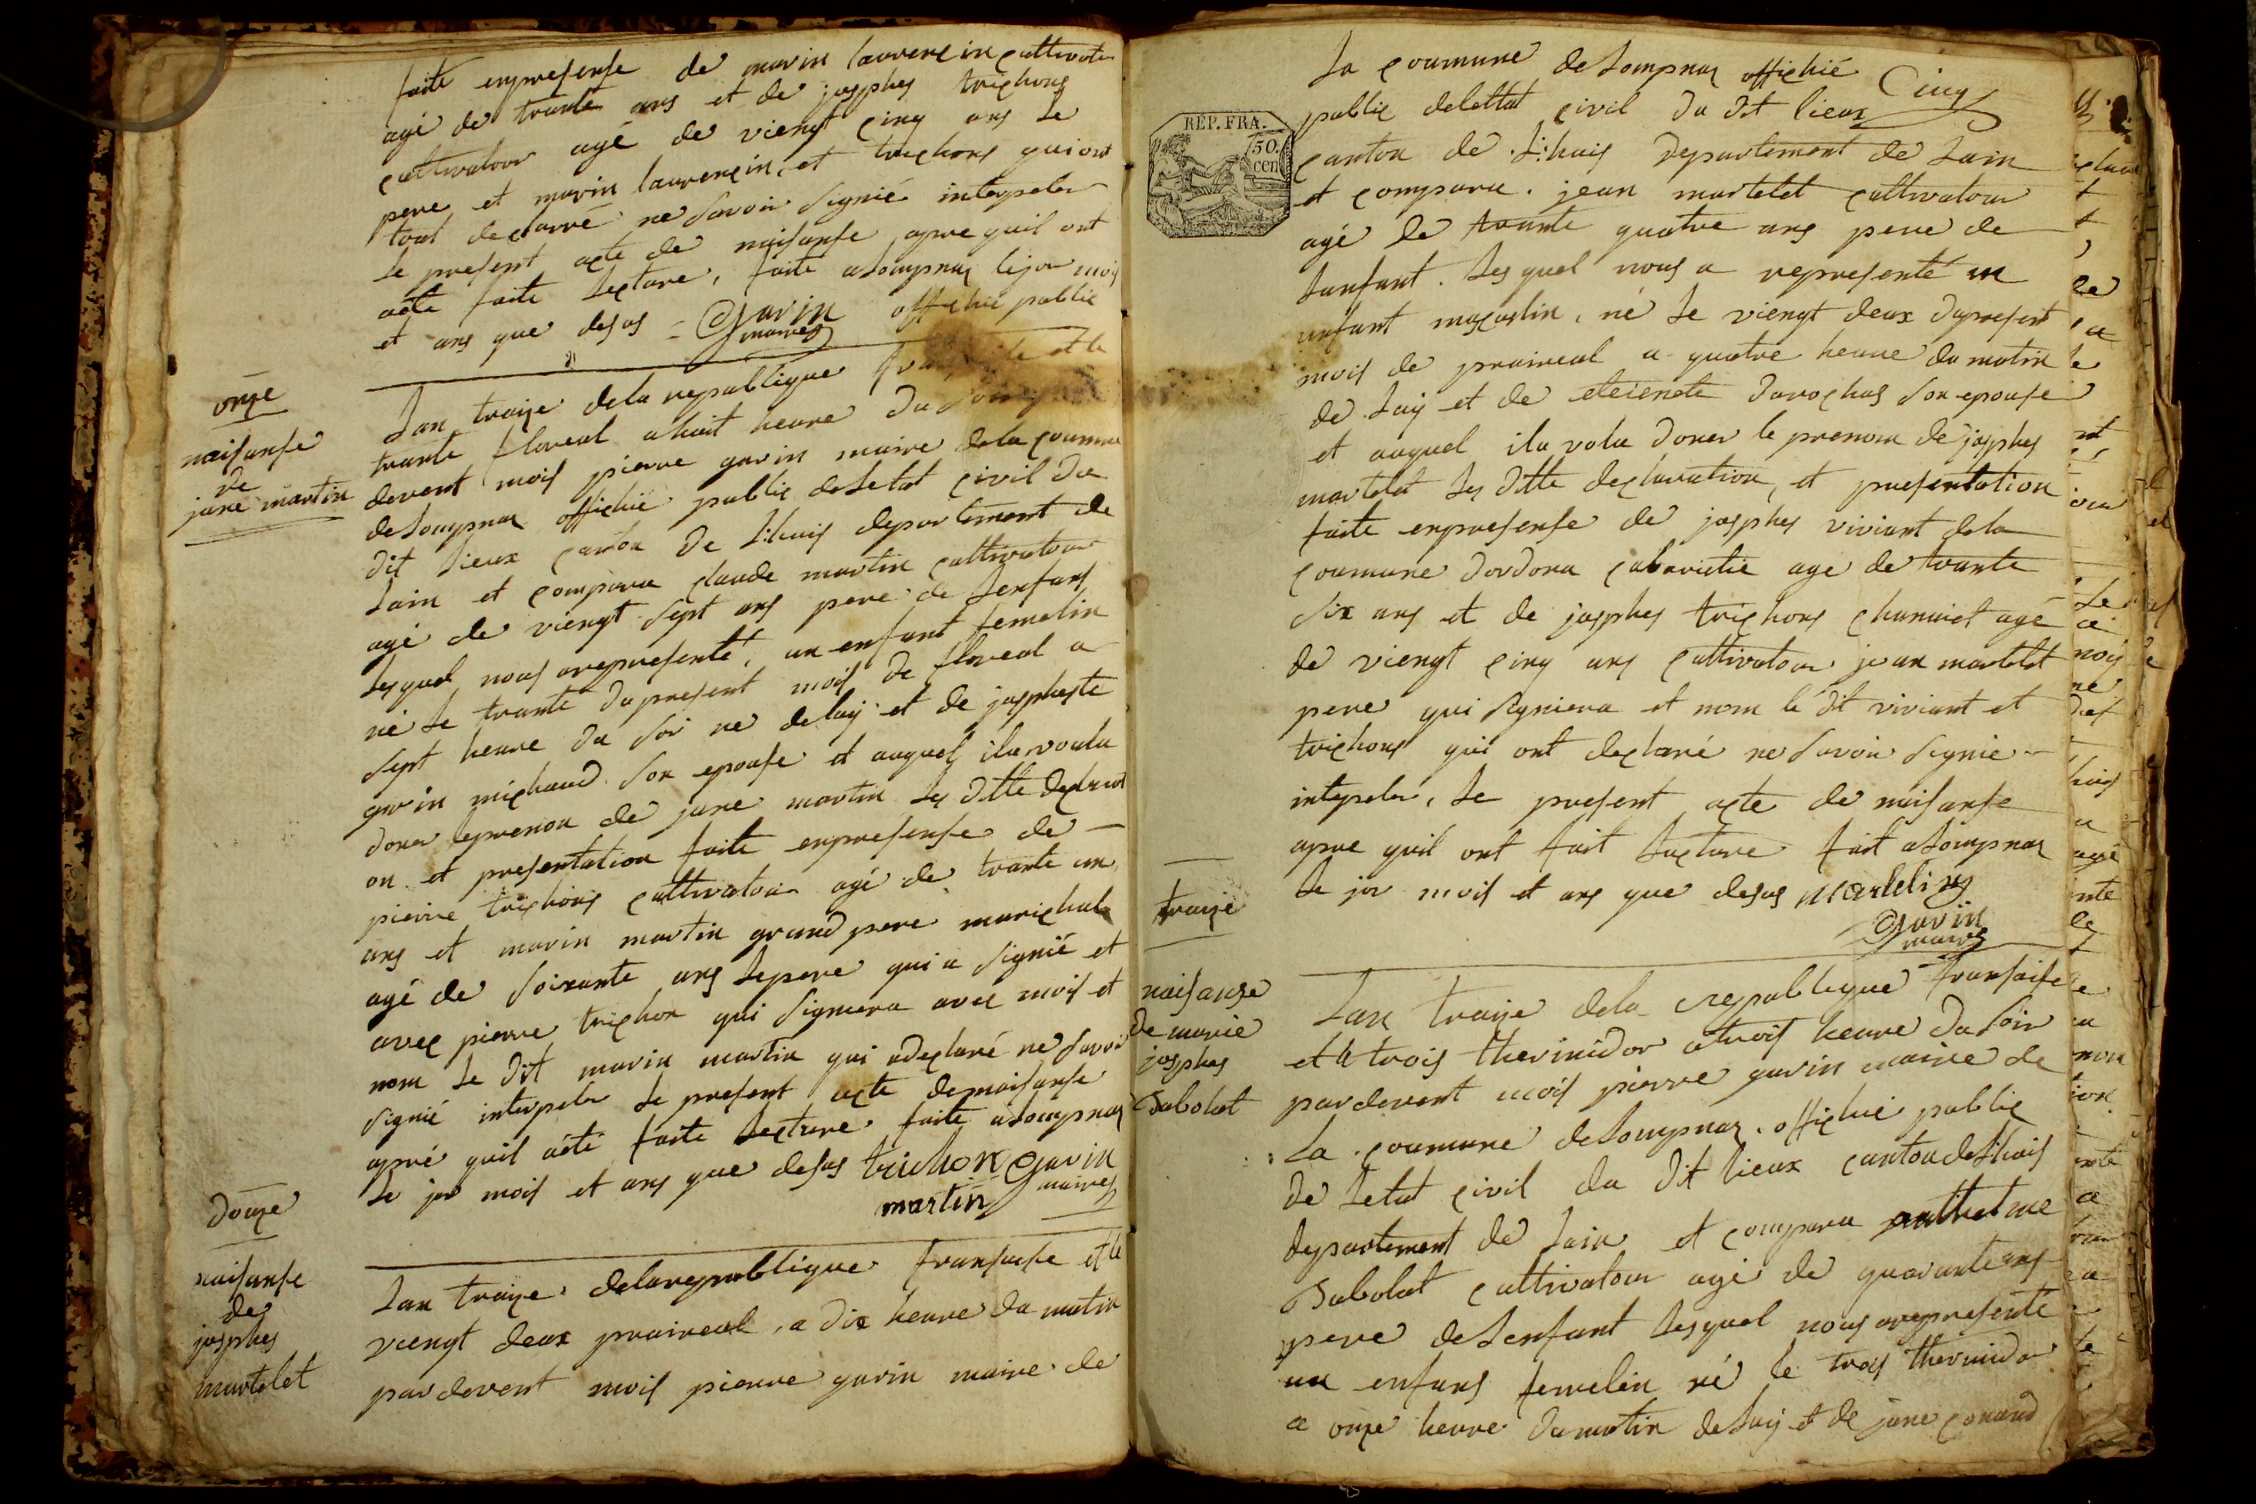 faite enpresense de marin laurencin cultivate
agé de trante ans et de josphes trichons
cultivatour agé de viengt cinq ans le
pere et marin laurencin et trichons qui ont
tout declarré ne savoir signié interpeler
le present acte de naisanse apre quil ont
aété faite lecture, faite a Lompnaz le jor mois
et ans que desus = Gavin offichié public
maire
onze
naisanse
de
jane martin
Lan traize dela republique et le
trante floreal a huit heure du soir
devent mois pierre gavin maire dela coumune
de Lompnaz offichié public de letat civil du
dit lieux canton de L:huis departement de
Lain et comparu claude martin cultivatour
agé de viengt sept ans pere de lenfans
lesquel nous arepresenté, un enfant femelin
né le trante du present mois de floreal a
sept heure du soir ne de luy et de jospheste
gavin michaud son epouse et auquel ila voulu
doner leprenon de jane martin les ditte declarati
on et presentation faite enpresense de
pierre trichons cultivatour agé de trante un
ans et marin martin grand pere marichal
agé de soixante ans lepere qui a signié et
avec pierre trichon qui signiera avec mois et
nom le dit marin martin qui adeclaré ne savoir
signié interpeler le present acte denaisanse
apré quil aété faite lecture faite a Lompnaz
le jor mois et ans que desus trichon Gavin
martin maire
douze
naisanse
de
josphes
martelet
Lan traize delarepublique fransaise et le
viengt deux praireal, a dix heure du matin
pardevent mois pierre gavin maire de
La coumune de Lompnaz offichié
Cinq
public delettat civil du dit lieux
REP. FRA.
50.
CEN
canton de L:huis departement de Lain
et comparu. jean martelet cultivatour
agé de trante quatre ans pere de
lanfant. Lesquel nous a representé un
enfant mascuslin, né le viengt deux du present
mois de praireal a quatre heure du matin
de luy et de eteienete darochas son epouse
et auquel ila volu doner le prenom de josphes
martelet les ditte declaration, et presentation
faite enpresense de josphes viviant dela
coumune dordona cabaretie age de trante
six ans et de josphes trichons charuiet agé
de viengt cinq ans cultivatour jean martelet
pere qui signiera et nom le dit viviant et
trichons qui ont declaré ne savoir signie
interpeler, le present acte de naisanse
apre quil ont fait lecture fait a Lompnaz
le jor mois et ans que desus
Gavin
maire
traize
naisanse
de marie
josphes
Sabolat
Lan traize dela republique fransaise
et le trois therimidor a trois heure du soir
pardevent mois pierre gavin maire de
La coumune de Lompnaz. offichié public
de letat civil du dit lieux canton de L:huis
departement de Lain et comparu
Sabolat cultivatour agé de quarante ans
pere de lenfant lesquel nous arepresenté
un enfans femelin né le trois thermidor
a onze heure du matin de luy et de jane conand